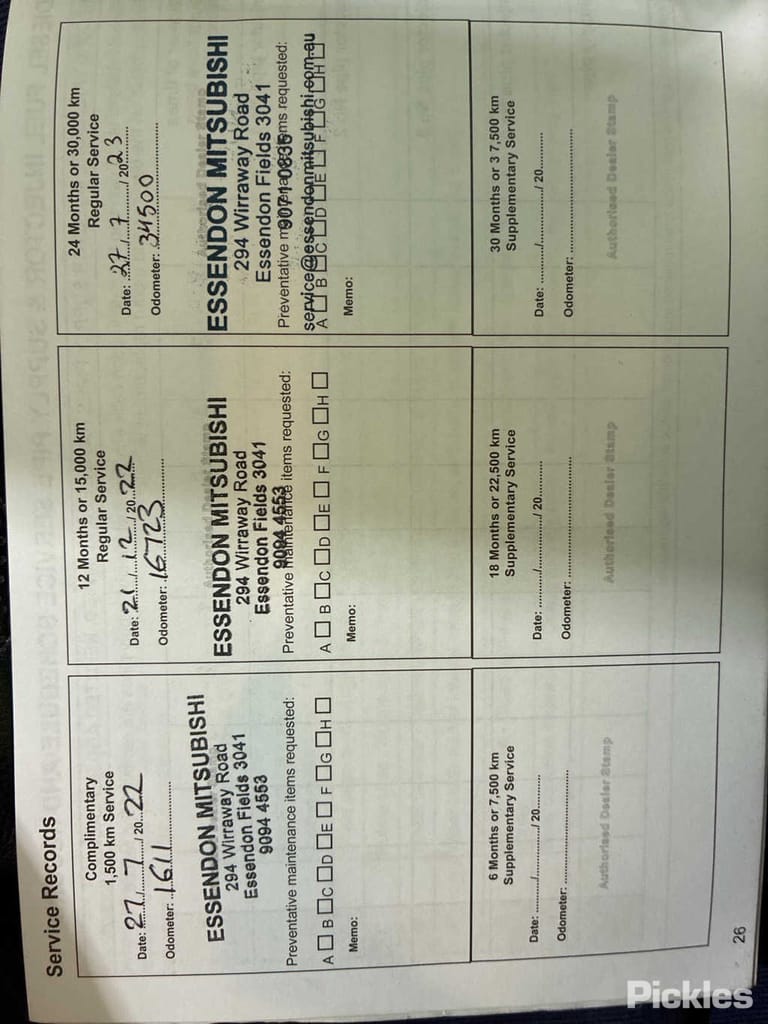 Service Records
Complimentary
1,500 km Service
Date: 27/7/2022
Odometer: 1611
ESSENDON MITSUBISHI
294 Wirraway Road
Essendon Fields 3041
9094 4553
Preventative maintenance items requested:
A □ B □ C □ D □ E □ F □ G □ H □
Memo:
12 Months or 15,000 km
Regular Service
Date: 21/12/2022
Odometer: 16723
ESSENDON MITSUBISHI
294 Wirraway Road
Essendon Fields 3041
9094 4553
Preventative maintenance items requested:
A □ B □ C □ D □ E □ F □ G □ H □
Memo:
24 Months or 30,000 km
Regular Service
Date: 27/7/2023
Odometer: 34500
ESSENDON MITSUBISHI
294 Wirraway Road
Essendon Fields 3041
Preventative maintenance items requested:
9071 0835
service@essendonmitsubishi.com.au
A □ B □ C □ D □ E □ F □ G □ H □
Memo:
6 Months or 7,500 km
Supplementary Service
Date: ........../................/ 20..........
Odometer: ..............................
Authorised Dealer Stamp
18 Months or 22,500 km
Supplementary Service
Date: ........../................/ 20..........
Odometer: ..............................
Authorised Dealer Stamp
30 Months or 3 7,500 km
Supplementary Service
Date: ........../................/ 20..........
Odometer: ..............................
Authorised Dealer Stamp
26
Pickles